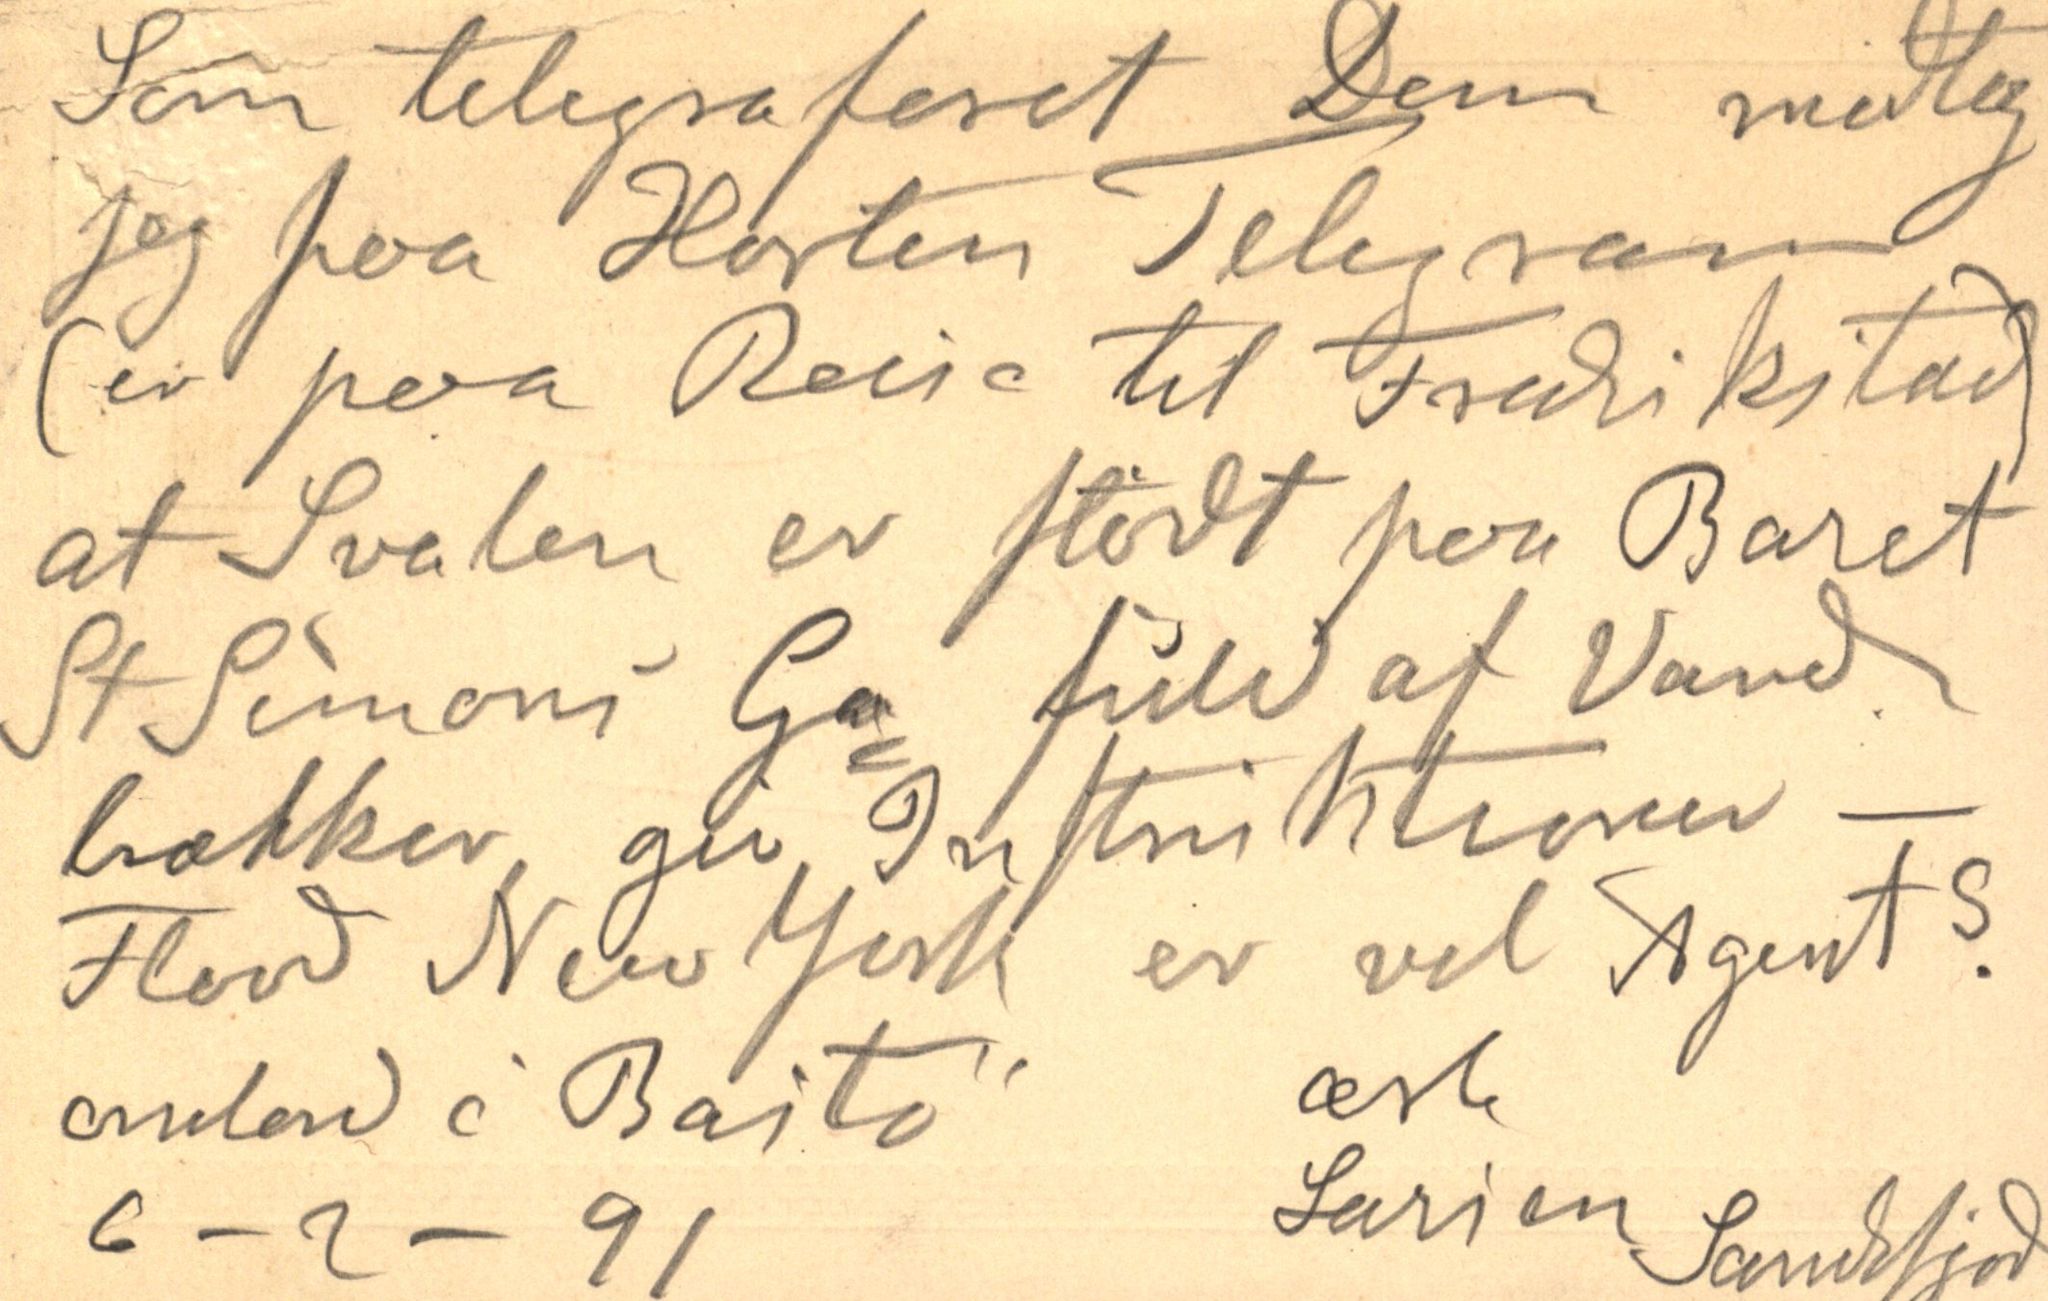 Som telegraferet Dem modtog
jeg paa Horten Telegram
(er paa Reise til Fredrikstad)
at Svalen er stödt paa Baret
St Simons Ga fuld af Vand
lækker, giv Instruktioner —
Flood New York er vel Agent?
ombord i Bastö ærb
6-2-91 Larsen Sandefjord